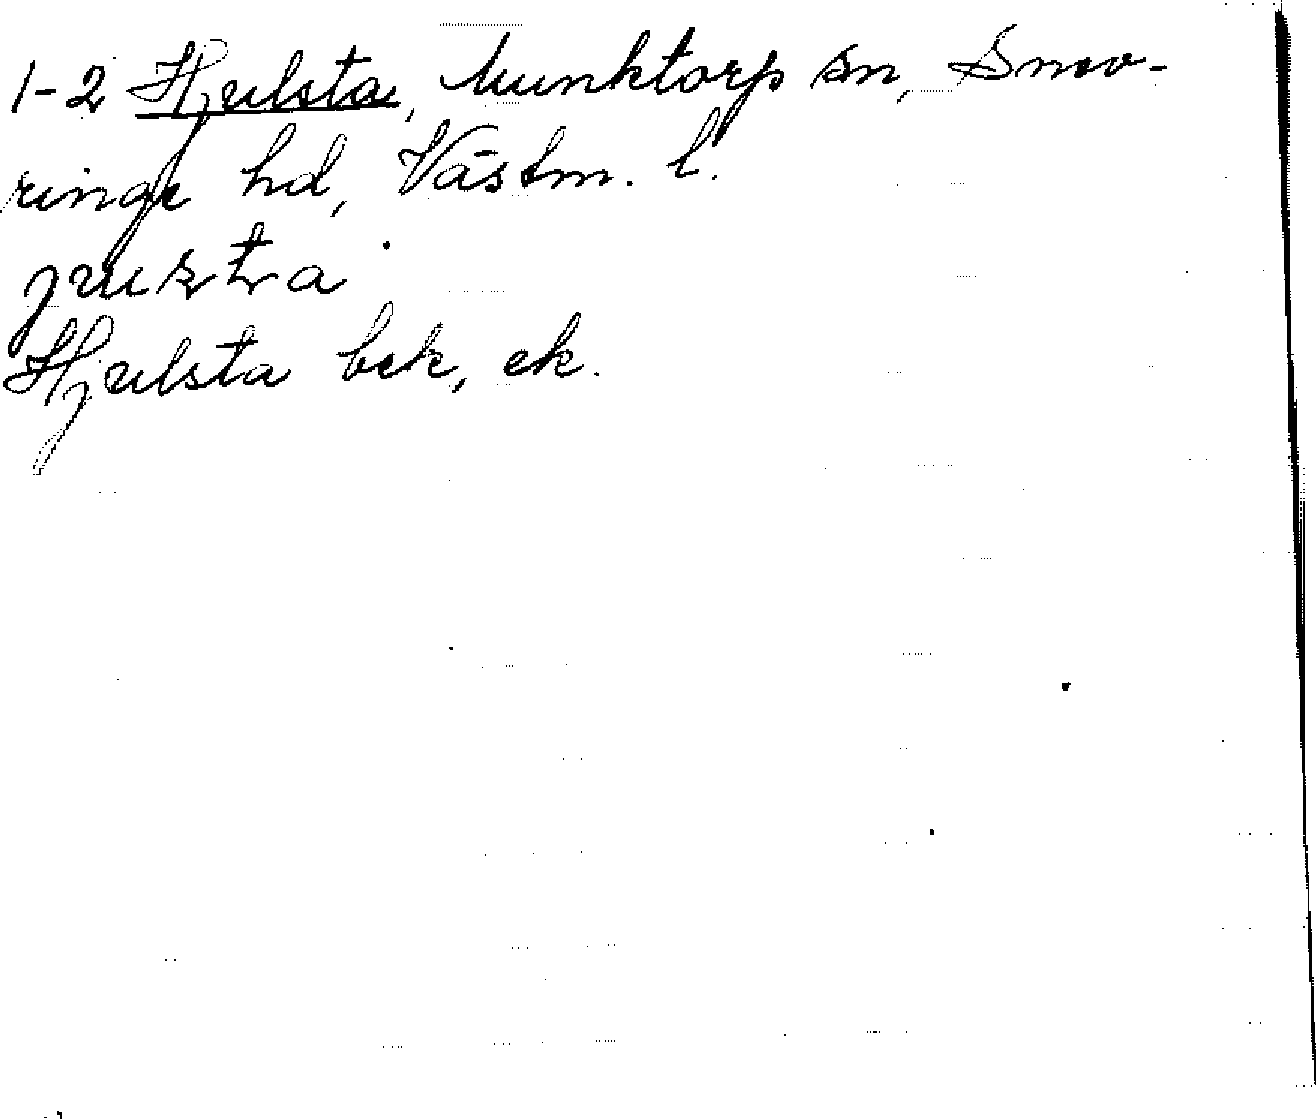 1-2 Hjulsta, Munktorp sn, Snev-
ringe hd, Västm. l.
Hjulsta bek, ek.